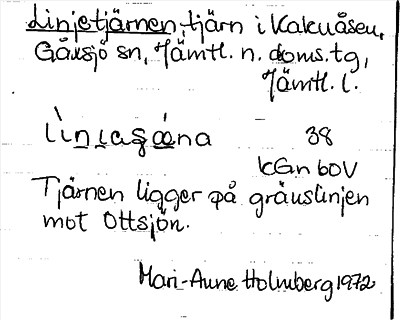 Linjetjärnen, tjärn i Kakuåsen,
Gåxsjö sn, Jämtl. n. doms.tg,
Jämtl. l.
38
kGn boV
Tjärnen ligger på gränslinjen
mot Ottsjön.
Mari-Anne Holmberg 1972